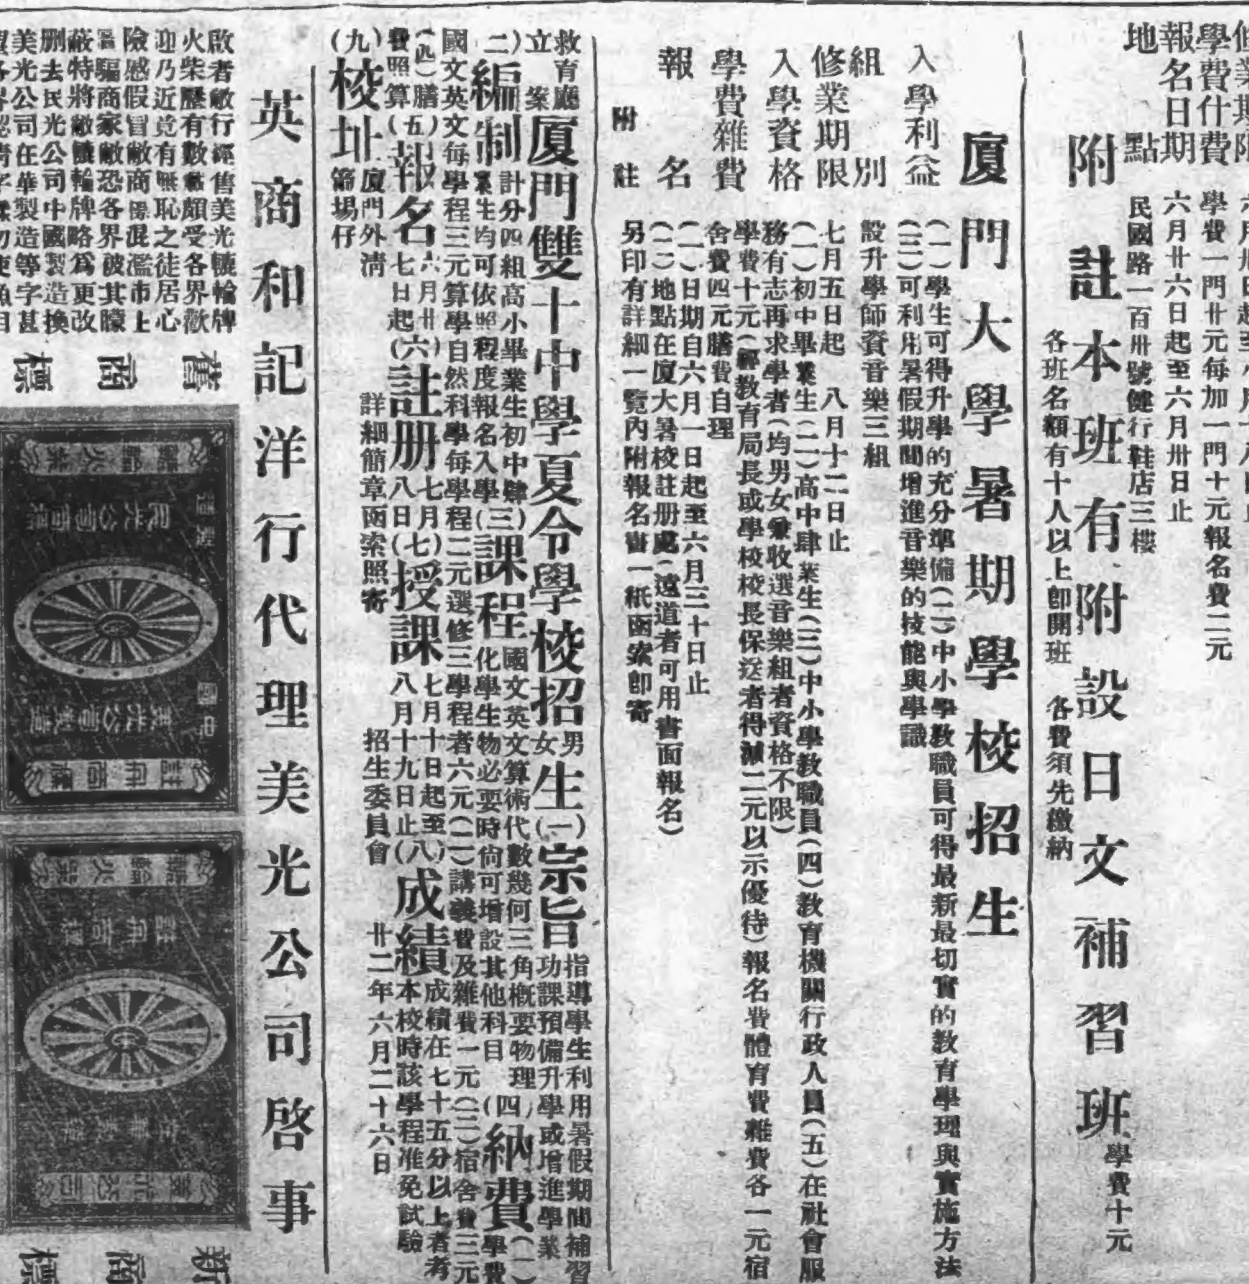 學費什費 學費一門廿元每加一門十元報名費二元
報名日期 六月廿六日起至六月卅日止
地點 民國路一百卅號健行鞋店三樓
附註 本班有附設日文補習班 學費十元
各班名額有十人以上卽開班 各費須先繳納
廈門大學暑期學校招生
入學利益 (一)學生可得升學的充分準備(二)中小學教職員可得最新最切實的教育學理與實施方法
(三)可利用暑假期間增進音樂的技能與學識
組別 設升學師資音樂三組
修業期限 七月五日起 八月十二日止
入學資格 (一)初中畢業生(二)高中肄業生(三)中小學教職員(四)教育機關行政人員(五)在社會服
務有志再求學者(均男女兼收選音樂組者資格不限)
學費雜費 學費十元(經教育局長或學校校長保送者得減二元以示優待)報名費體育費雜費各一元宿
舍費四元膳費自理
報名 (一)日期自六月一日起至六月三十日止
(二)地點在廈大暑校註册處(遠道者可用書面報名)
附註 另印有詳細一覽內附報名書一紙函索卽寄
教育廳立案廈門雙十中學夏令學校招男女生(一)宗旨指導學生利用暑假期間補習
功課預備升學或增進學業
(二)編制計分四組高小畢業生初中肄
業生均可依照程度報名入學(三)課程國文英文算術代數幾何三角概要物理
化學生物必要時尙可增設其他科目(四)納費(一)學費
國文英文每學程三元算學自然科學每學程二元選修三學程者六元(二)講義費及雜費一元(三)宿舍費三元
(四)膳費照算(五)報名六月廿七日起(六)註册七月八日(七)授課七月十日起至八月十九日止(八)成績成績在七十五分以上者考
本校時該學程准免試驗
(九)校址廈門外淸箭場仔 詳細簡章函索照寄 招生委員會 廿二年六月二十六日
英商和記洋行代理美光公司啓事
啟者敝行經售美光轆輪牌
火柴歷有數載頗受各界歡
迎乃近竟有無恥之徒居心
險惑假冒敝商標混濫市上
騙商家敝恐各界被其朦
蔽特將敝轆輪牌略爲更改
删去民光公司中國製造換
美光公司在華製造等字甚
舊商標
新商標